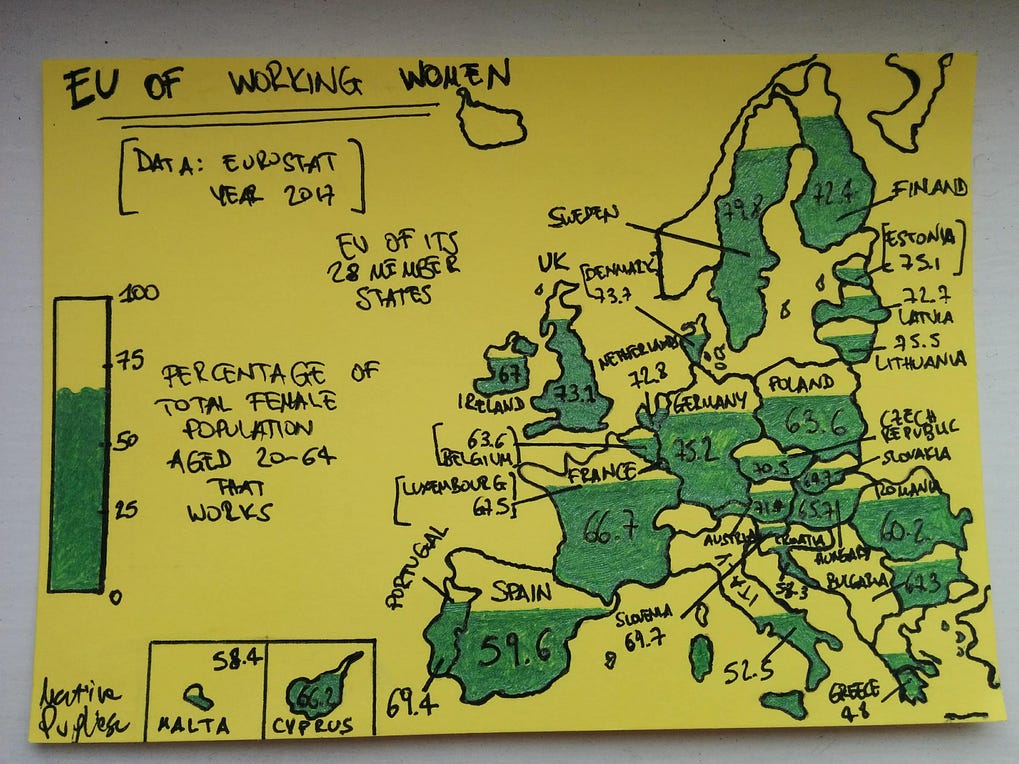 EU OF WORKING WOMEN
[DATA: EUROSTAT
YEAR 2017]
EU OF ITS
28 MEMBER
STATES
100
75
50
25
0
PERCENTAGE OF
TOTAL FEMALE
POPULATION
AGED 20-64
THAT
WORKS
SWEDEN
79.8
72.4
FINLAND
[ESTONIA]
75.1
72.7
LATVIA
75.5
LITHUANIA
UK
73.1
[DENMARK]
73.7
67
IRELAND
NETHERLANDS
72.8
GERMANY
75.2
POLAND
63.6
CZECH
REPUBLIC
70.5
SLOVAKIA
[63.6
BELGIUM
[LUXEMBOURG]
67.5
FRANCE
66.7
AUSTRIA
CROATIA
58.3
65.7
HUNGARY
ROMANIA
60.2
BULGARIA
67.3
PORTUGAL
69.4
SPAIN
59.6
SLOVENIA
69.7
ITA
52.5
GREECE
48
58.4
MALTA
66.2
CYPRUS